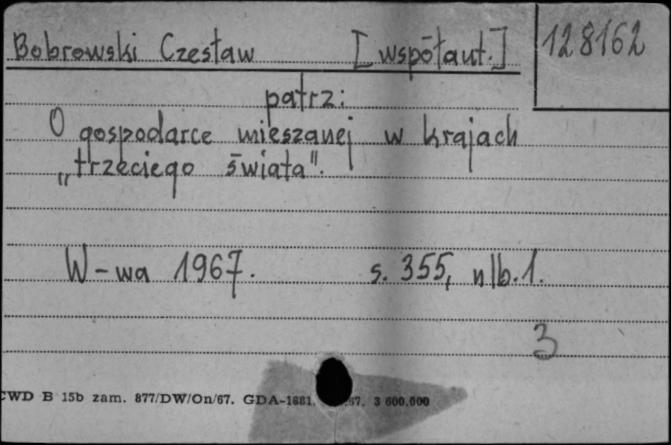 Bobrowski Czesław [współaut.] 128162
patrz:
O gospodarce mieszanej w krajach
„trzeciego świata".
W-wa 1967. s. 355, nlb. 1.
3
CWD B 15b zam. 877/DW/On/67. GDA-1681. 67. 3 600.000